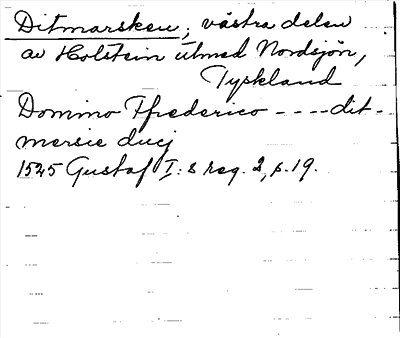 Ditmarsken, västra delen
av Holstein utmed Nordsjön,
Tyskland
Domino Ffrederico ---- dit-
mersie ducj
1525 Gustaf I:s reg. 2, s. 19.